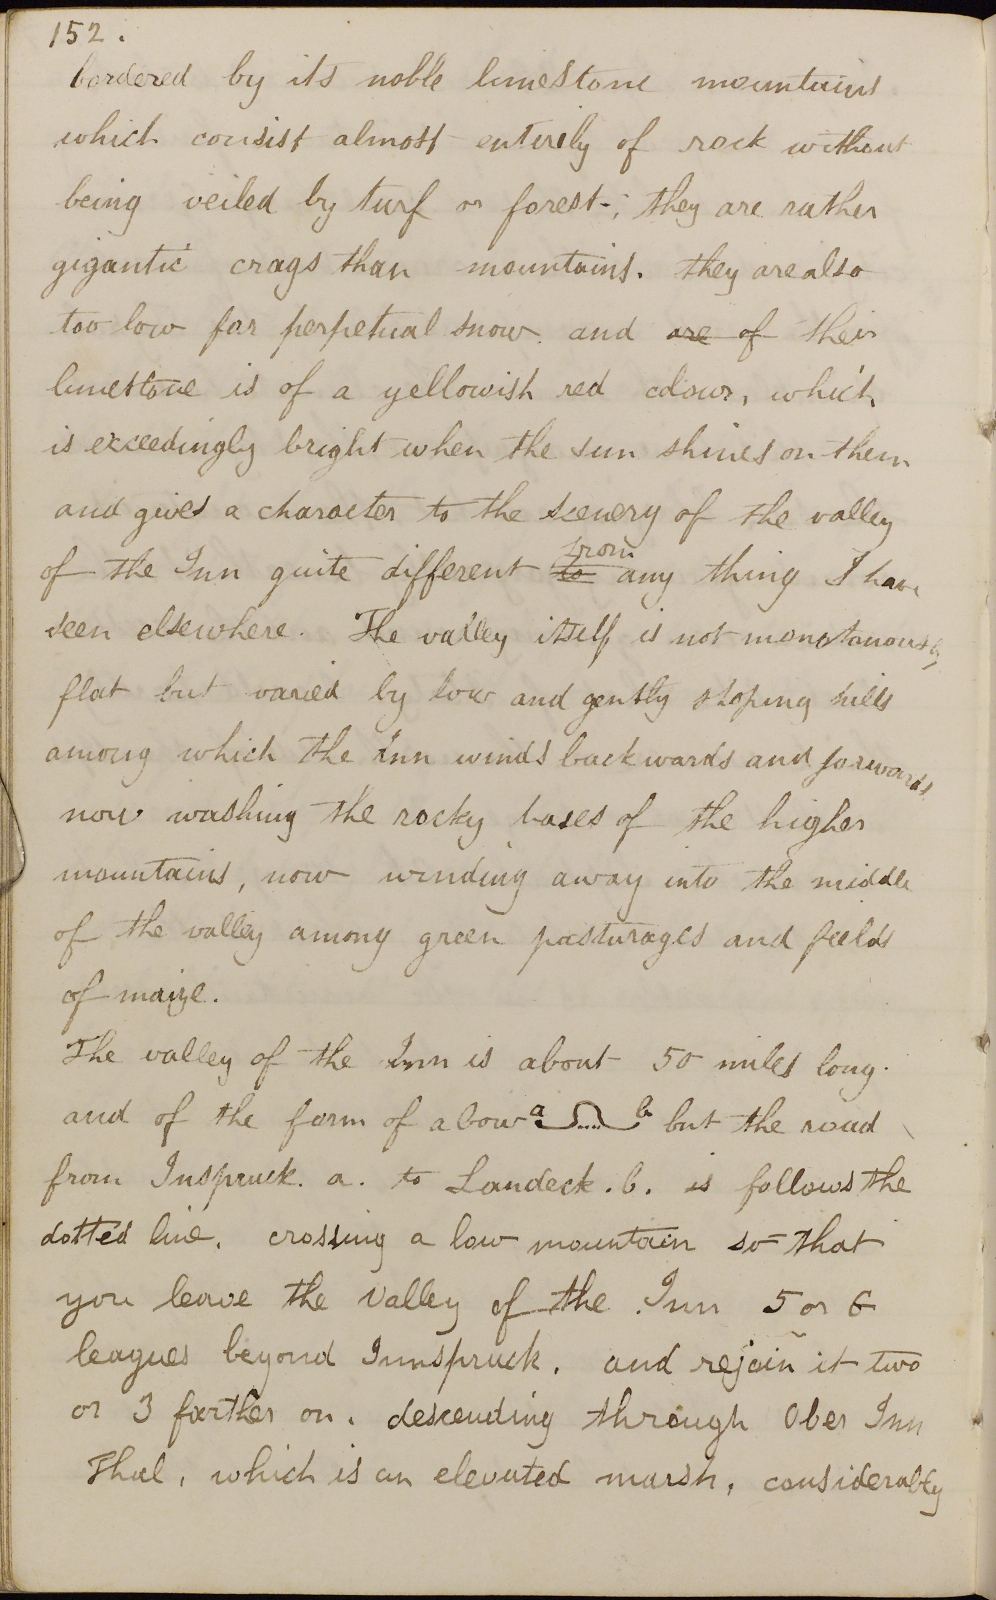 152.
bordered by its noble limestone mountains
which consist almost entirely of rock without
being veiled by turf or forest-; they are rather
gigantic crags than mountains. they are also
too low for perpetual snow. and are of their
limestone is of a yellowish red colour, which
is exceedingly bright when the sun shines on them
and gives a character to the scenery of the valley
from
of the Inn quite different to any thing I have
seen elsewhere. The valley itself is not monotonously
flat but varied by low and gently sloping hills
among which the Inn winds backwards and forwards
now washing the rocky bases of the higher
mountains, now winding away into the middle
of the valley among green pasturages and feelds
of maize.
The valley of the Inn is about 50 miles long.
and of the form of a bow a b but the road
from Inspruck. a. to Landeck. b. is follows the
dotted line. crossing a low mountain so that
you leave the Valley of the Inn 5 or 6
leagues beyond Innspruck. and rejoin it two
or 3 farther on. descending through Ober Inn
Thal, which is an elevated marsh, considerably